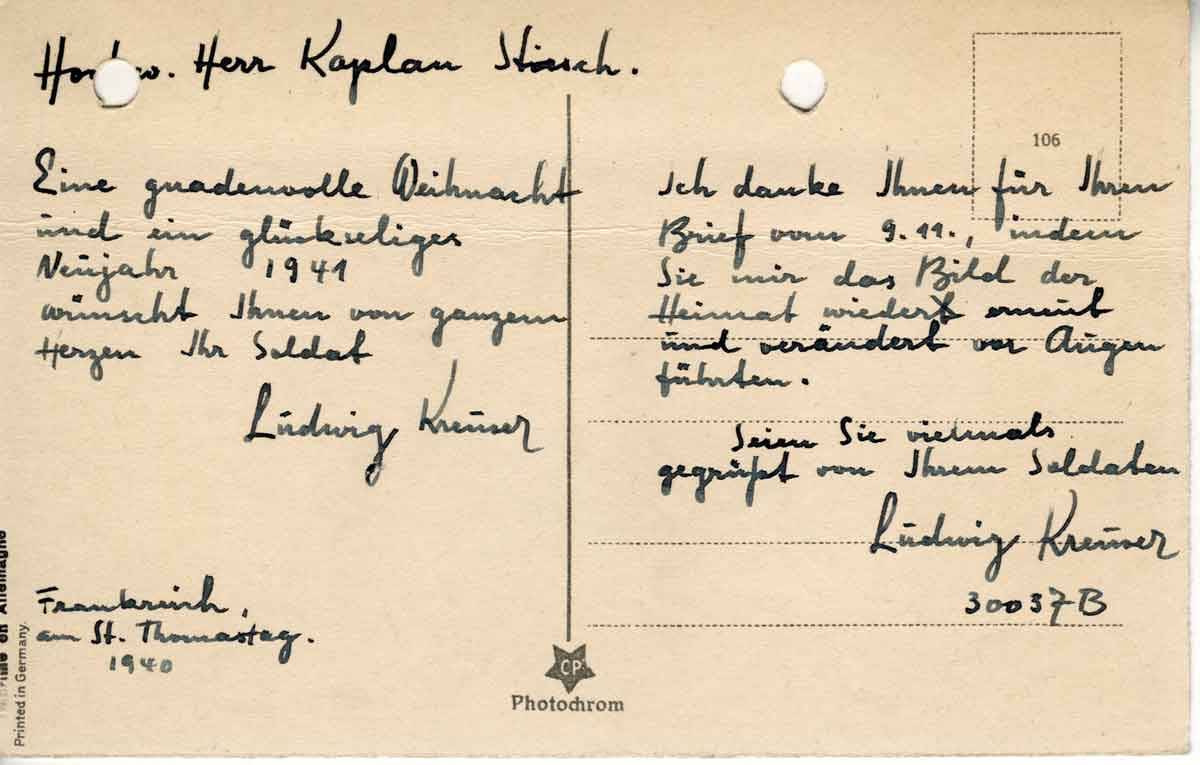 Herr Kaplan
Eine gnadenvolle Weihnacht
und ein glückseliges
Neujahr 1941
wünscht Ihnen von ganzem
Herzen Ihr Soldat
Ludwig Kreuser
Frankreich,
am St. Thomastag.
1940
106
Ich danke Ihnen für Ihren
Brief vom 9.11., indem
Sie mir das Bild der
Heimat wieder erneut
und verändert vor Augen
führten.
Seien Sie vielmals
gegrüßt von Ihrem Soldaten
Ludwig Kreuser
30037B
CP
Photochrom
en Allemagne
Printed in Germany.